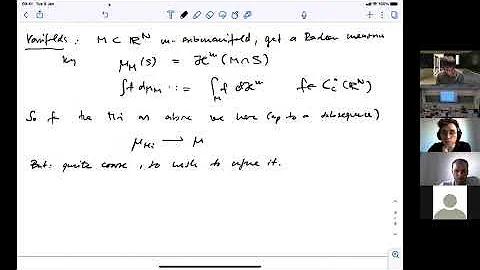 09:41 Tue 5 Jan
Varifolds: M ⊂ ℝᴺ m-submanifold, get a Radon measure
by μ_M(S) = ℋᵐ(M∩S)
∫f dμ_M := ∫_M f dℋᵐ f ∈ C_c^0(ℝᴺ)
So for the Mi as above we have (up to a subsequence)
μ_Mi ⟶ μ
But: quite coarse, so wish to refine it.